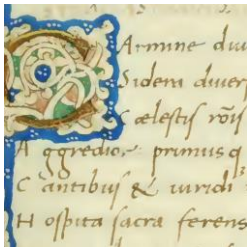 CArmine diu
Sidera diuer
Cælestis rōis
A ggredior primusq
C antibus & uiridi
H ospita sacra ferens